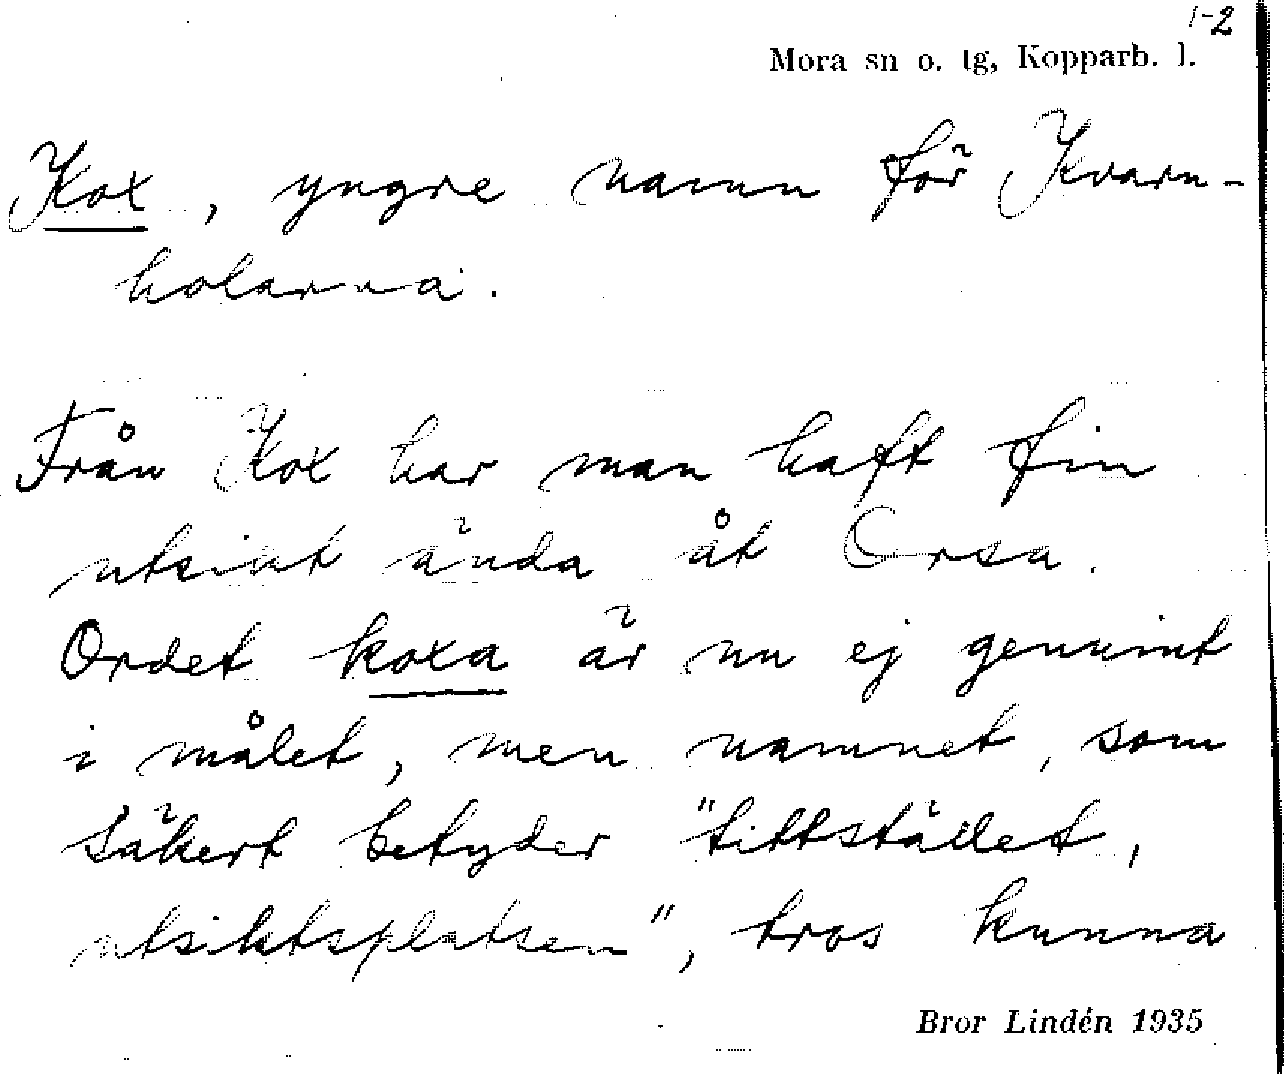 1-2
Mora sn o. tg, Kopparb. l.
Kox, yngre namn för Kvarn-
holarna.
Från Kox har man haft fin
utsikt ända åt Orsa.
Ordet koxa är nu ej genuint
i målet, men namnet, som
säkert betyder "tittstället,
utsiktsplatsen", tros kunna
Bror Lindén 1935